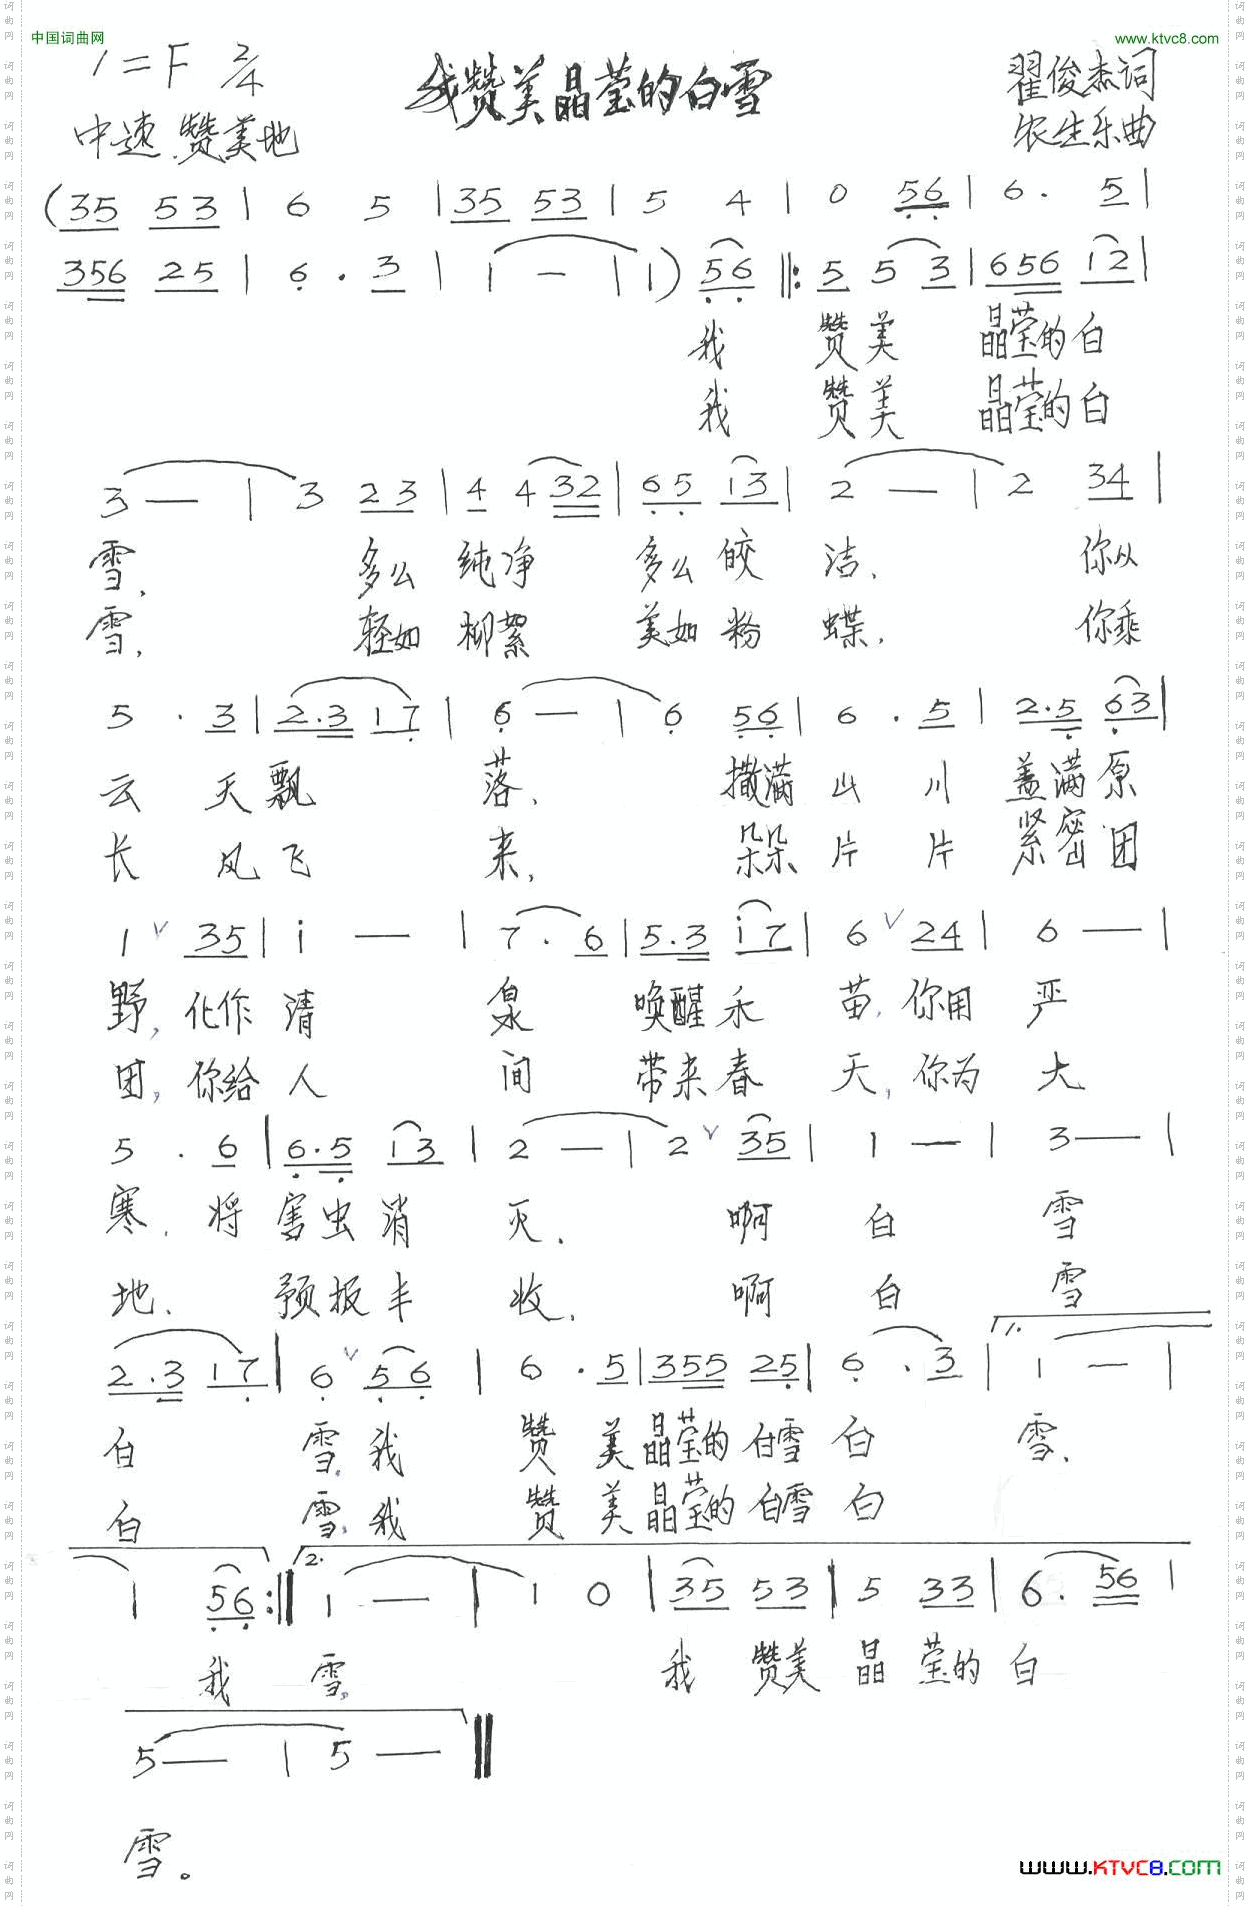 中国词曲网
www.ktvc8.com
1=F 2/4
我赞美晶莹的白雪
翟俊杰词
中速 赞美地
农生乐曲
(35 53 | 6 5 | 35 53 | 5 4 | 0 56 | 6. 5 |
356 25 | 6. 3 | 1 — | 1) 56 ‖: 5 5 3 | 656 12 |
我 赞美 晶莹的白
我 赞美 晶莹的白
3 — | 3 23 | 4 4 32 | 65 13 | 2 — | 2 34 |
雪, 多么 纯净 多么皎 洁、 你从
雪, 轻如 柳絮 美如粉 蝶, 你乘
5 . 3 | 2.3 17 | 6 — | 6 56 | 6 . 5 | 2.5 63 |
云 天飘 落、 撒满 山 川 盖满原
长 风飞 来, 朵朵 片 片 紧密团
1 ∨ 35 | i — | 7 . 6 | 5.3 i7 | 6 ∨ 24 | 6 — |
野, 化作 清 泉 唤醒禾 苗, 你用 严
团, 你给 人 间 带来春 天, 你为 大
5 . 6 | 6.5 13 | 2 — | 2 ∨ 35 | 1 — | 3 — |
寒, 将 害虫消 灭、 啊 白 雪
地、 预报丰 收, 啊 白 雪
2.3 17 | 6 ∨ 56 | 6 . 5 | 355 25 | 6 . 3 | 1. 1 — |
白 雪, 我 赞 美 晶莹的 白雪 白 雪、
白 雪, 我 赞 美 晶莹的 白雪 白
1 56 :‖ 2. 1 — | 1 0 | 35 53 | 5 33 | 6. 56 |
我 雪, 我 赞美 晶 莹的 白
5 — | 5 — ‖
雪。
www.KTVC8.com